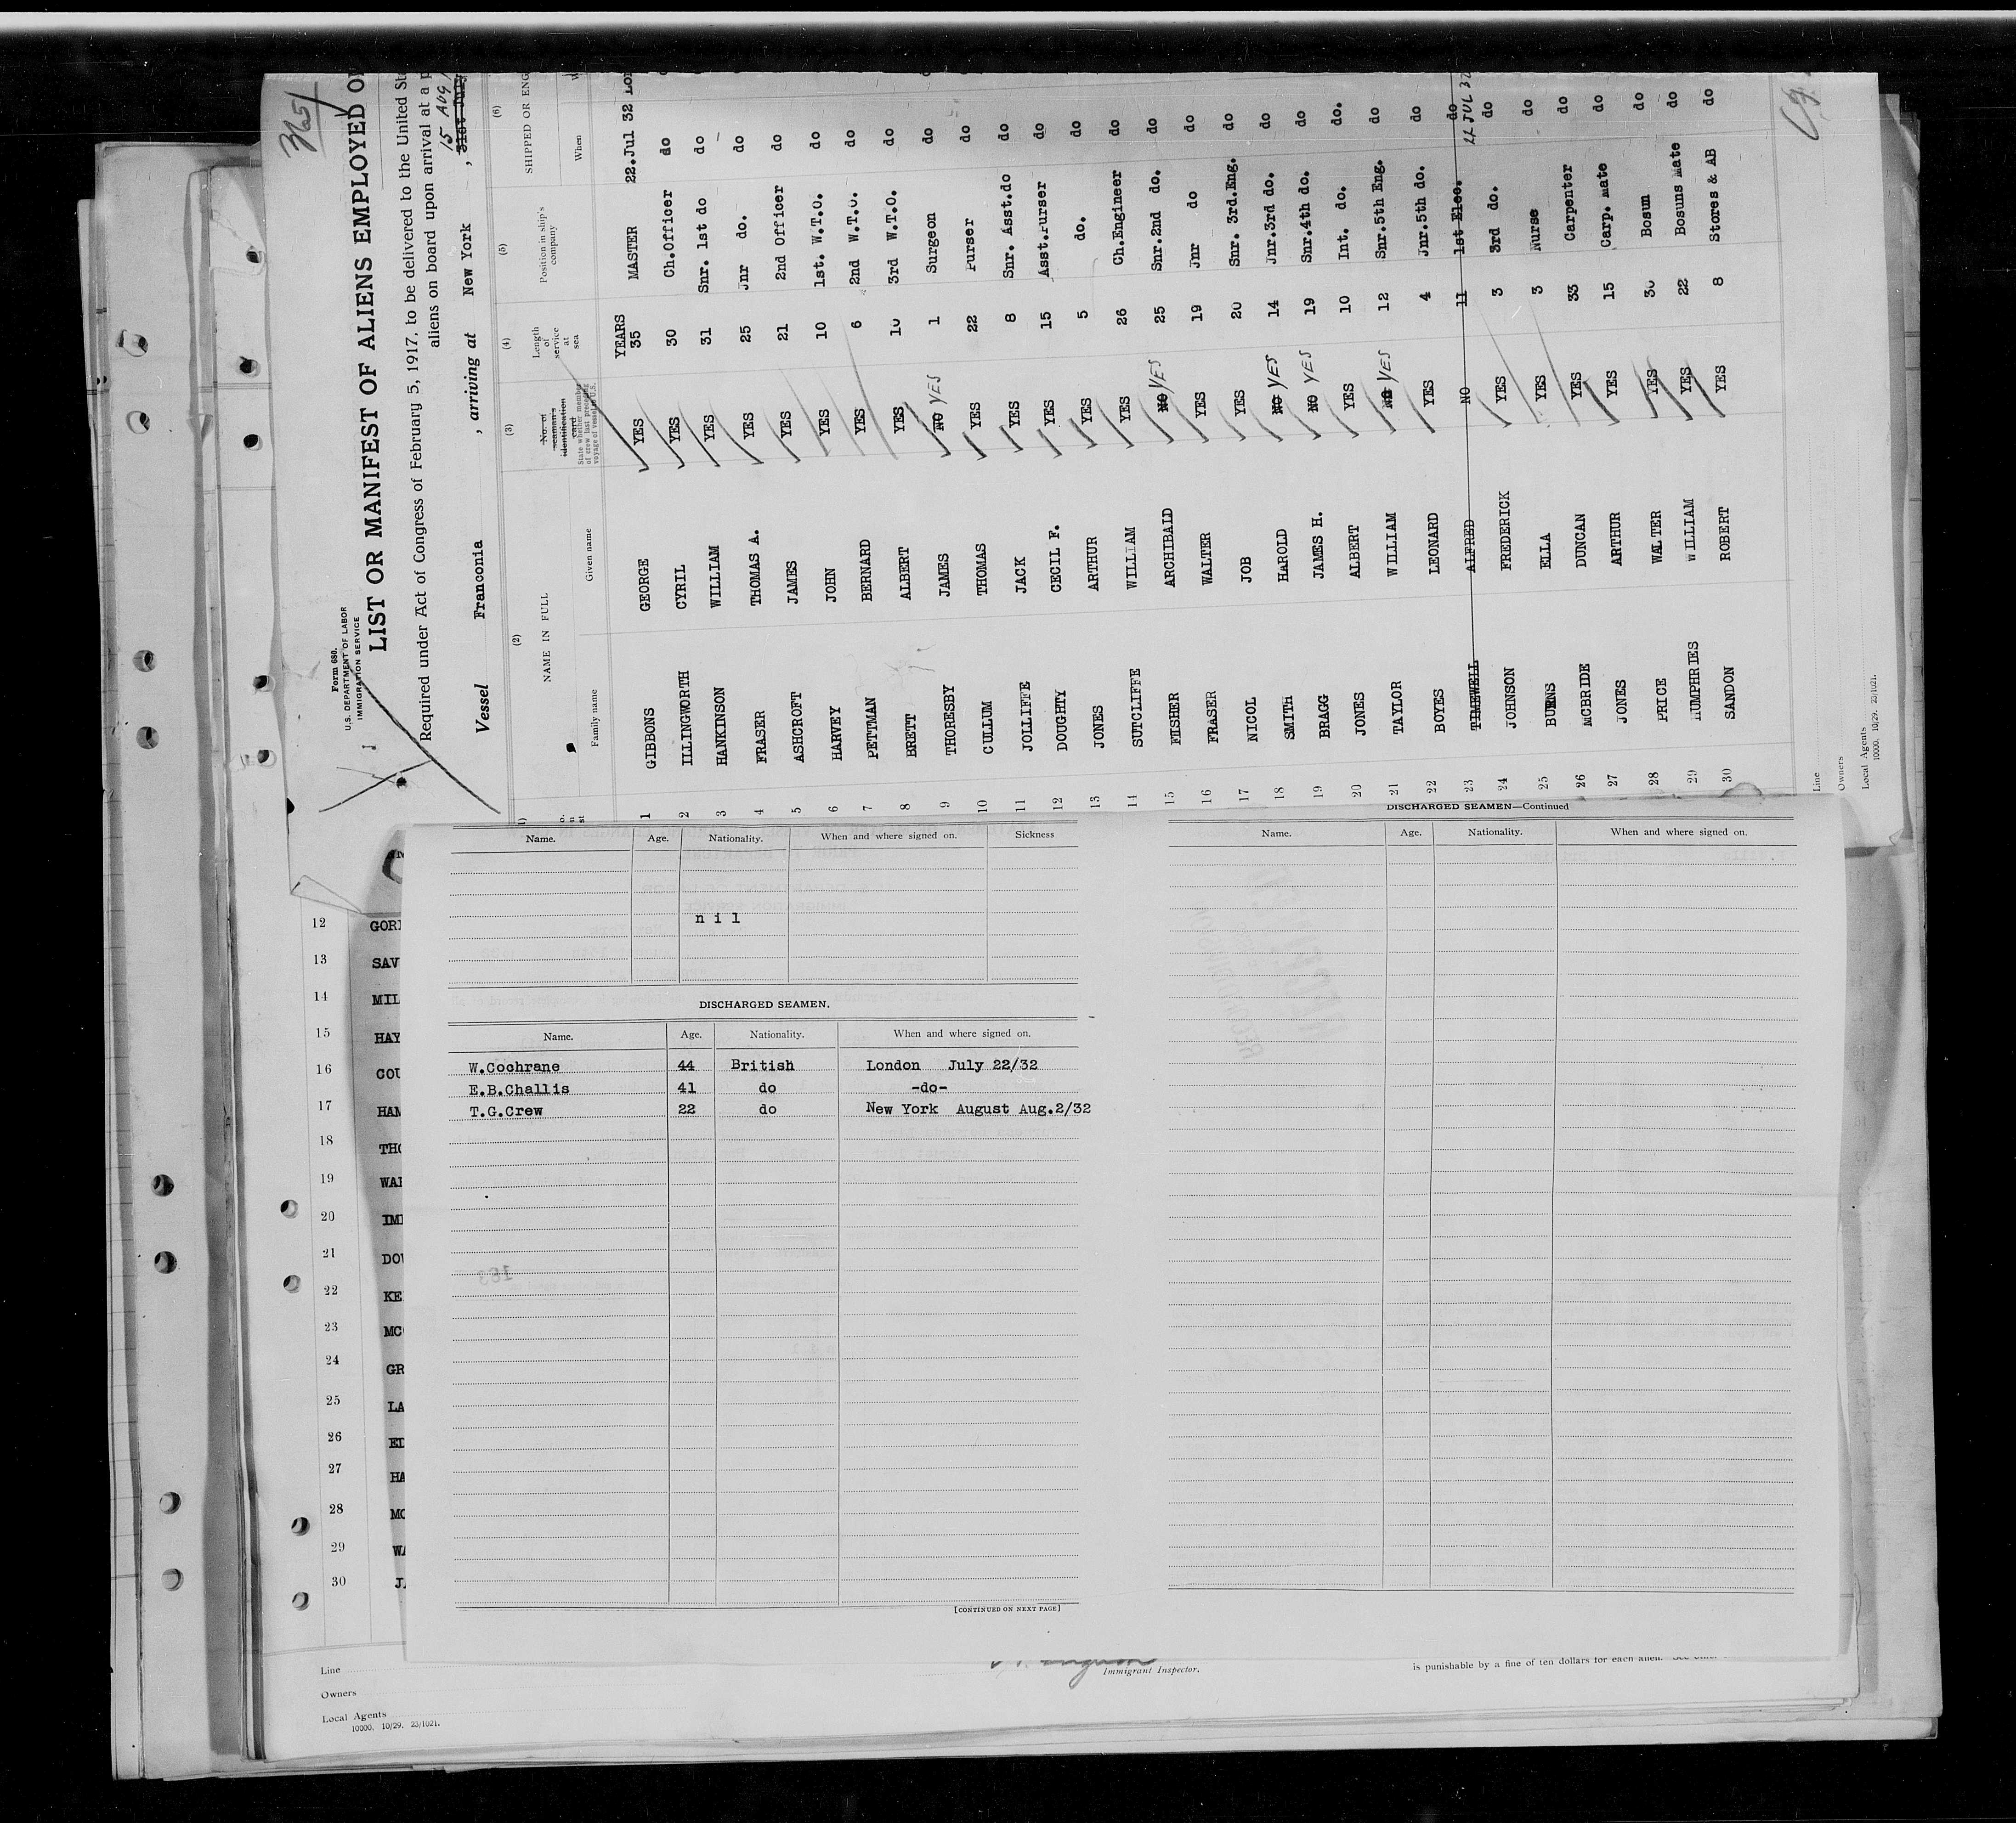 3651
Form 680.
U.S. DEPARTMENT OF LABOR
IMMIGRATION SERVICE
LIST OR MANIFEST OF ALIENS EMPLOYED
Required under Act of Congress of February 5, 1917, to be delivered to the United
aliens on board upon arrival at a
15 AUG
Vessel Franconia , arriving at New York , 31st July
(2) (3) (4) (5) (6)
NAME IN FULL
No. of seaman's identification card
State whether member of crew last preceding voyage of vessel to U.S.
Length of service at sea
Position in ship's company
SHIPPED OR
Family name Given name When
YEARS
1 GIBBONS GEORGE YES 35 MASTER 22.Jul 32
2 ILLINGWORTH CYRIL YES 30 Ch.Officer do
3 HANKINSON WILLIAM YES 31 Snr. 1st do do
4 FRASER THOMAS A. YES 25 Jnr do. do
5 ASHCROFT JAMES YES 21 2nd Officer do
6 HARVEY JOHN YES 10 1st. W.T.O. do
7 PETTMAN BERNARD YES 6 2nd W.T.O. do
8 BRETT ALBERT YES 10 3rd W.T.O. do
9 THORESBY JAMES NO YES 1 Surgeon do
10 CULLUM THOMAS YES 22 Purser do
11 JOLLIFFE JACK YES 8 Snr. Asst.do do
12 DOUGHTY CECIL F. YES 15 Asst.Purser do
13 JONES ARTHUR YES 5 do. do
14 SUTCLIFFE WILLIAM YES 26 Ch.Engineer do
15 FISHER ARCHIBALD NO YES 25 Snr.2nd do. do
16 FRASER WALTER YES 19 Jnr do do
17 NICOL JOB YES 20 Snr. 3rd.Eng. do
18 SMITH HAROLD NO YES 14 Jnr.3rd do. do
19 BRAGG JAMES H. NO YES 19 Snr.4th do. do
20 JONES ALBERT YES 10 Int. do. do.
21 TAYLOR WILLIAM NO YES 12 Snr.5th Eng. do
22 BOYES LEONARD YES 4 Jnr.5th do. do
23 TIMEWELL ALFRED NO 11 1st Elec. do
22 JUL 32
24 JOHNSON FREDERICK YES 3 3rd do. do
25 BURNS ELLA YES 3 Nurse do
26 McBRIDE DUNCAN YES 33 Carpenter do
27 JONES ARTHUR YES 15 Carp. Mate do
28 PRICE WALTER YES 30 Bosun do
29 HUMPHRIES WILLIAM YES 22 Bosuns Mate do
30 SANDON ROBERT YES 8 Stores & AB do
Line
Owners
Local Agents
10000. 10/29. 23/1021.
Name. Age. Nationality. When and where signed on. Sickness
nil
DISCHARGED SEAMEN.
Name. Age. Nationality. When and where signed on.
W.Cochrane 44 British London July 22/32
E.B.Challis 41 do -do-
T.G.Crew 22 do New York August Aug.2/32
[CONTINUED ON NEXT PAGE]
DISCHARGED SEAMEN—Continued
Name. Age. Nationality. When and where signed on.
12 GOR
13 SAV
14 MIL
15 HAY
16 COU
17 HAM
18 THO
19 WAR
20 IMI
21 DOW
22 KE
23 MC
24 GR
25 LA
26 ED
27 HA
28 MC
29 WA
30 J
Line
Owners
Local Agents
10000. 10/29. 23/1021.
Immigrant Inspector.
is punishable by a fine of ten dollars for each alien.